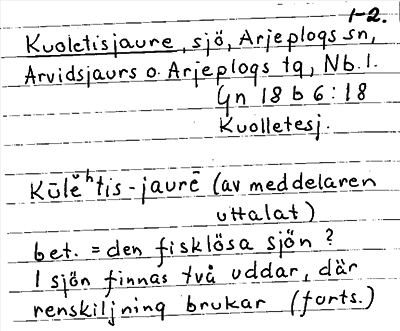 1-2.
Kuoletisjaure, sjö, Arjeplogs sn,
Arvidsjaurs o. Arjeplogs tg, Nb. l.
Gn 18 b 6:18
Kuolletesj.
Kūlĕʰtis-jaurē (av meddelaren
uttalat)
bet. = den fisklösa sjön ?
I sjön finnas två uddar, där
renskiljning brukar (forts.)